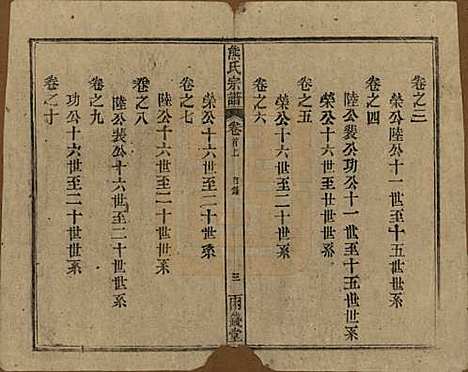 卷之三
榮公陸公十一世至十五世世系
卷之四
陸公裴公功公十一世至十五世世系
卷之五
榮公十六世至廿世世系
卷之六
榮公十六世至二十世世系
熊氏宗譜
卷首上
目錄
三
兩錢堂
卷之七
榮公十六世至二十世世系
卷之八
陸公十六世至二十世世系
卷之九
陸公裴公十六世至二十世世系
卷之十
功公十六世至二十世世系